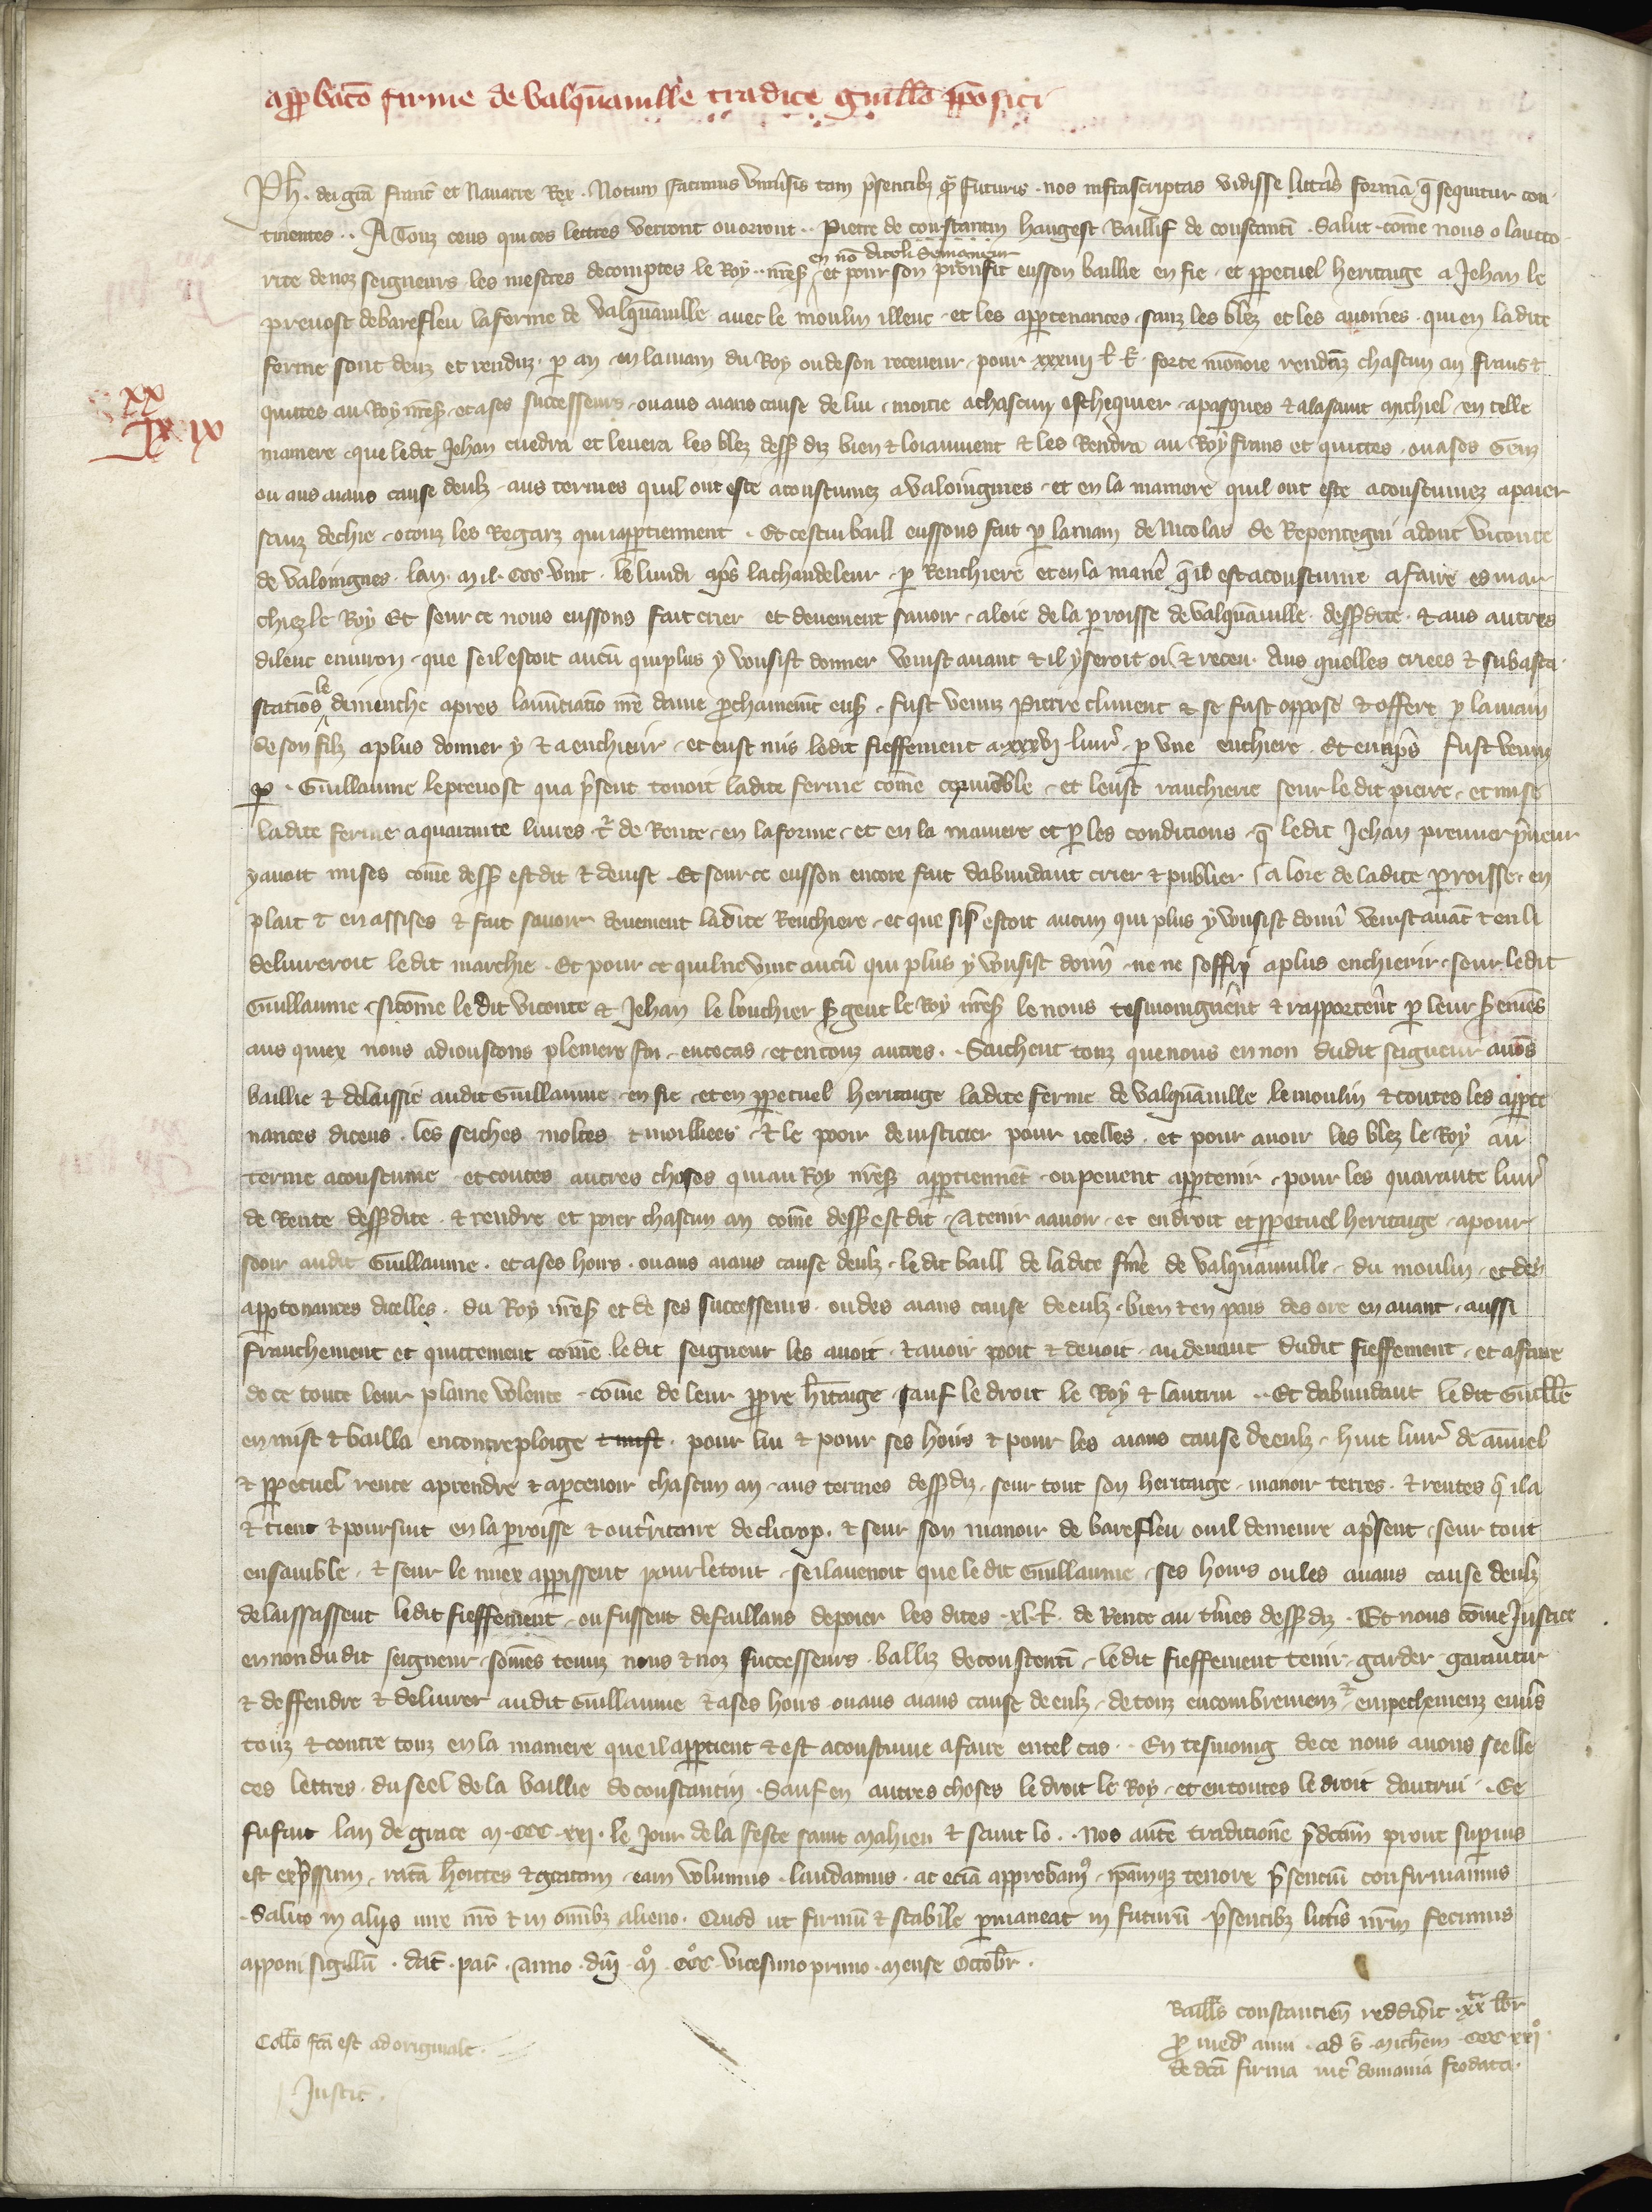 app̱bacō firme de Valqãuille tradite Guill̃o p̃positi
Ph̃. dei gr̃a franc̃ et Nauarre Rex. Notum facimus vniu̾sis tam p̃sentibȝ q̃ futuris. nos infrascriptas vidisse litt̾as formã q̃ sequitur con-
tinentes.. A Touz ceus qui ces lettres verront ou orront.. Pierre de constantin hangest Baillif de constantī. Salut. cõme nous o laucto-
en nõ dicoli Seigneur
rite de noz seigneurs les mestres de comptes le Roy nr̃es̃ et pour son proufit eusson baillie en fie et ꝑpetuel heritaige a Jehan le
preuost de barefleu la ferme de Valqãuille auec le moulin illeuc et les apꝑtenances sanz les blez et les auoines qui en ladite
ferme sont deuz et renduz ꝑ an en la main du Roy ou de son receueur pour xxxiiii l. t̃. forte mõnoie rendãz chascun an frans ⁊
xx
quittes au Roy nr̃es̃ et a ses successeurs ou aus aians cause de lui moitie a chascun eschequier a pasques ⁊ a la saint michiel en telle
lx ix
maniere que ledit Jehan cuedra et leuera les blez dess̃ diz bien ⁊ loiaument ⁊ les Rendra au Roy frans et quittes ou a ses Genz
ou aus aians cause deulz aus termes quil ont este acoustumez a valoingnes et en la maniere quil ont este acoustumez a paier
sanz dechie o touz les Regarz qui apꝑtiennent. Et cestui baill eussons fait ꝑ la main de Nicolas de Repentegni adont viconte
de valoingnes lan mil CCC vint le lundi ap̃s la chandeleur ꝑ Renchiere et en la manẽ q̃ il est acoustume a faire es mar-
chiez le Roy Et seur ce nous eussons fait crier et deuement sauoir a loie de la ꝑroisse de valqãuille dess̃dite ⁊ aus autres
dileuc enuiron que se il estoit aucũ qui plus y vousist donner venist auant ⁊ il y seroit oi ⁊ receu. Aus quelles criees ⁊ subasta-
le
stations dimenche apres lanũtiatiõ nr̃e dame ꝓchainem̃t ens̃. fust venuz Pierre climent ⁊ se fust oppose ⁊ offert ꝑ la main
de son filz a plus donner y ⁊ a enchierir et eust mis ledit fieffement a xxxvi liur̾ ꝑ vne enchiere. Et en ap̃s fust venu
ꝑ Guillaume le preuost qua p̃sent tenoit ladite ferme cõme et leust ranchierie seur ledit pierre et mise
ladite ferme a quarante liures t̾ de Rente en la forme et en la maniere et ꝑ les conditions q̃ ledit Jehan premier p̃neur
y auoit mises cõme dess̃ est dit ⁊ deuise Et seur ce eusson encore fait dabundant crier ⁊ publier a loie de ladite ꝑroisse en
plait ⁊ en assises ⁊ fait sauoir deuement ladite Renchiere et que sil estoit aucun qui plus y vousist donn̾ venist auãt ⁊ en li
deliurreroit ledit marchie. Et pour ce quil ne vint aucũ qui plus y vousist donn̾ ne ne soffry a plus enchierir seur ledit
Guillaume sicõme ledit viconte ⁊ Jehan le bouchier s̾gent le Roy nr̃es̃ le nous tesmoigner̃nt ⁊ rapporter̃nt ꝑ leur s̾emẽs
aus quiex nous adioustons pleniere foi en ce cas et en touz autres. Saichent touz que nous en non dudit seigneur auõs
baillie ⁊ delaissie audit Guillaume en fie et en ꝑpetuel heritaige ladite ferme de valqãuille le moulin ⁊ toutes les apꝑte-
nances diceus les seiches moltes ⁊ moilliees ⁊ le pooir de iusticier pour icelles et pour auoir les blez le Roy au
terme acoustume et toutes autres choses qui au Roy nr̃es̃ apꝑtiennẽt ou peuent apꝑtenir pour les quarante liur̾
de Rente dess̃dite ⁊ rendre et poier chascun an cõme dess̃ est dit A tenir a auoir et en droit et ꝑpetuel heritaige a pour-
seoir audit Guillaume et a ses hoirs ou aus aians cause deulz ledit baill de ladite fr̃me de valquanuille du moulin et des
apꝑtenances dicelles du Roy nr̃es̃ et de ses successeurs ou des aians cause de eulz bien ⁊ en pais des ore en auant aussi
franchement et quittement cõme ledit seigneur les auoit ⁊ auoir pooit ⁊ deuoit au deuant dudit fieffement et a faire
de ce toute leur plaine volente cõme de leur ꝓpre h̾itaige sauf le droit le Roy ⁊ lautrui.. Et dabundant ledit Guill̃e
en mist ⁊ bailla en contreploige ⁊ mist pour lui ⁊ pour ses hoirs ⁊ pour les aians cause de eulz huit liur̾ de annuel
⁊ ꝑpetuel rente a prendre ⁊ a ꝑceuoir chascun an aus termes dess̃diz seur tout son heritaige manoir terres ⁊ rentes q̃ il a
⁊ tient ⁊ poursuit en la ꝑroisse ⁊ ou t̾ritoire de clitrop. ⁊ seur son manoir de barefleu ou il demeure a p̃sent seur tout
ensamble ⁊ seur le miex apparissent pour le tout se il auenoit que ledit Guillaume ses hoirs ou les aians cause deulz
delaissassent ledit fieffement ou fussent defaillans de poier les dites xl. l̃. de Rente au t̾mes dess̃diz. Et nous cõme Justice
en non dudit seigneur sõmes tenuz nous ⁊ noz successeurs balliz de constentī ledit fieffement tenir garder garantir
⁊ deffendre ⁊ deliurer audit Guillaume ⁊ a ses hoirs ou aus aians cause de eulz de touz encombremenz ⁊ empechemenz enu̾s
touz ⁊ contre touz en la maniere que il apꝑtient ⁊ est acoustume a faire en tel cas.. En tesmoing de ce nous auons seelle
ces lettres du seel de la baillie de constantin Sauf en autres choses le droit le Roy et en toutes le droit dautrui. Ce
fu fait lan de grace M CCC xxi. le Jour de la feste saint Mahieu ⁊ saint lo.. Nos autẽ traditionẽ p̃dc̃am prout sup̾ius
est exp̃ssum, ratã h̃entes ⁊ gratam eam volumus laudamus ac eciã approbam⁹ ip̃amqȝ tenore p̃senciũ confirmamus
Saluo in alijs iure nr̃o ⁊ in om̃ibȝ alieno. Quod ut firmũ ⁊ stabile ꝑmaneat in futurũ p̃sentibȝ litt̾is nr̃m fecimus
apponi sigillũ. dat̃. par̃. Anno dñi Mº CCCº vicesimo primo mense Octobr̃.
Baill̃s constancieñ reddidit xx l̃br̃
Coll̃o fc̃a est ad originale.
ꝓ med̾ anni ad s̃. Mich̃em CCC xxiº
Justic̃.
de dc̃a firma int̾ domania feodata.